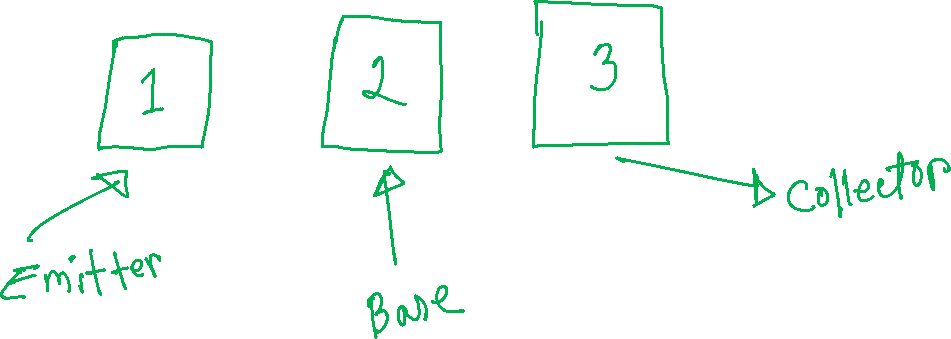 1 2 3
Emitter
Base
Collector